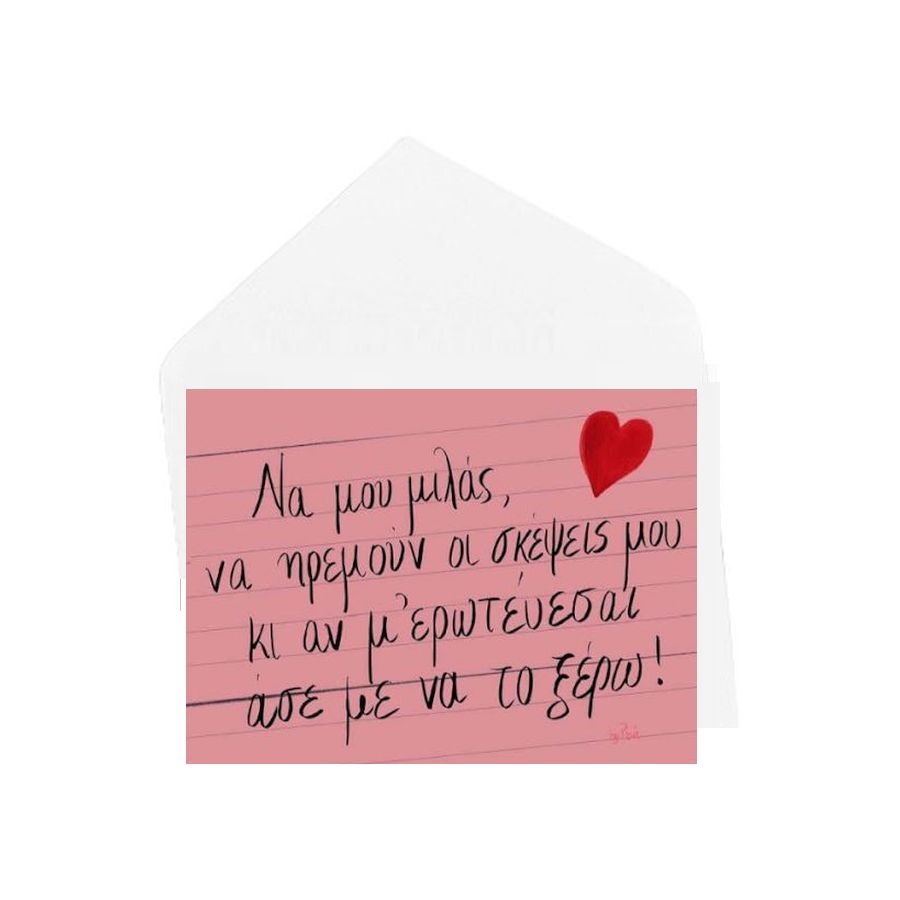 Να μου μιλάς,
να ηρεμούν οι σκέψεις μου
κι αν μ'ερωτεύεσαι
άσε με να το ξέρω!